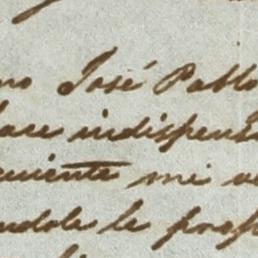 no José Pablo
hace indispensa
cuiente mi
ndole le prop